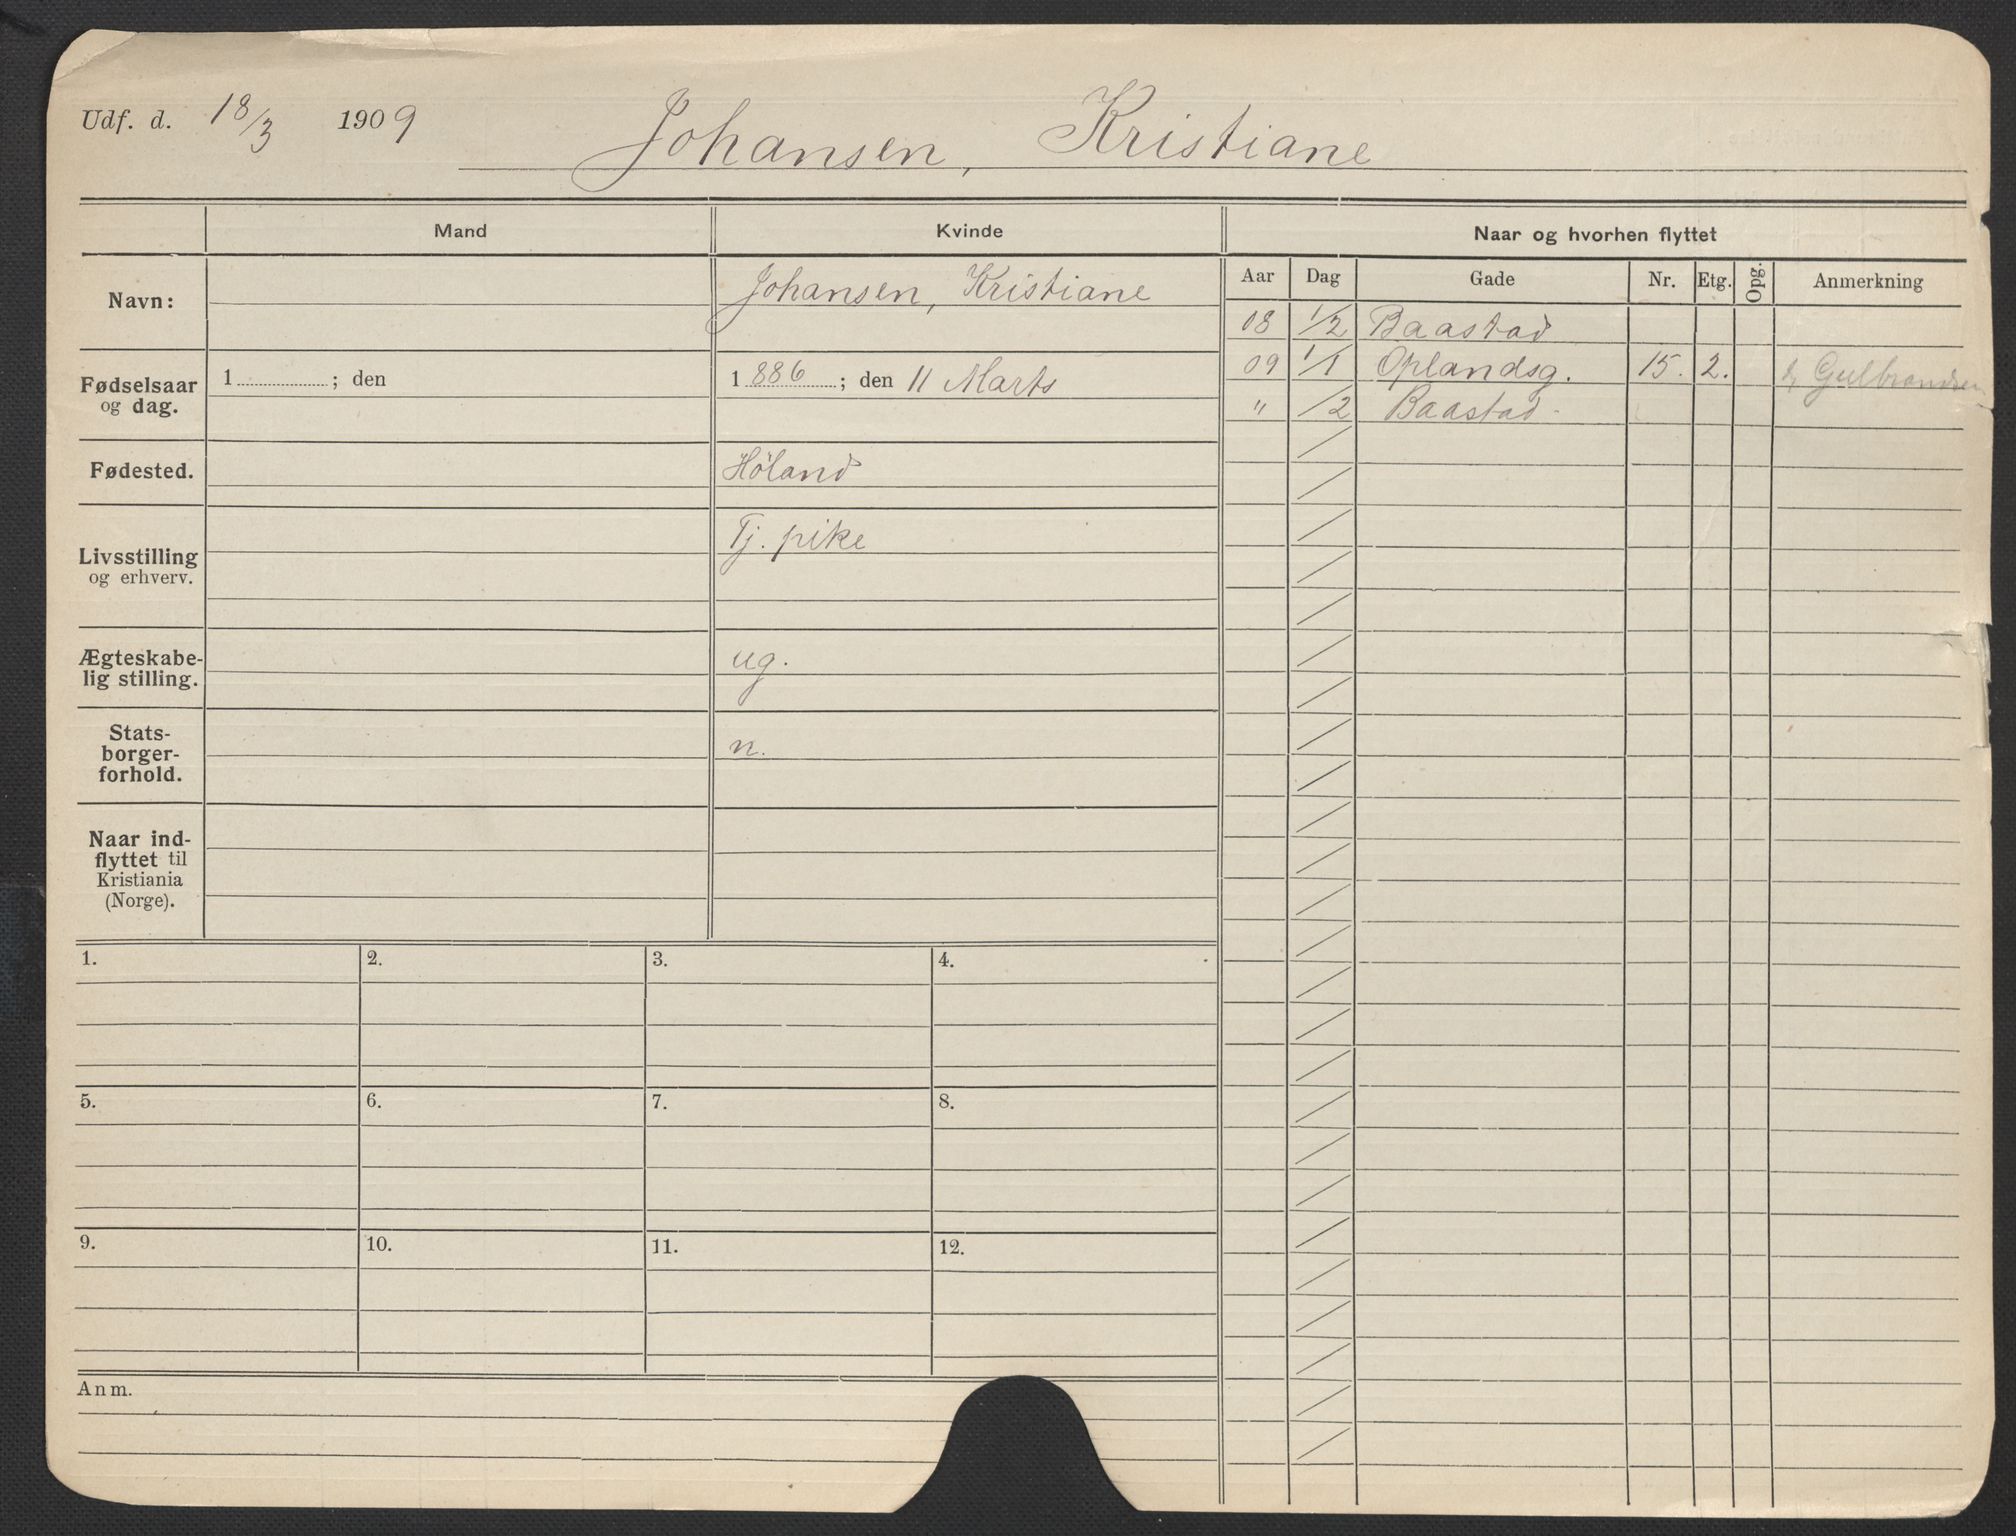 Udf. d. 18/3 1909 Johansen, Kristiane
Mand Kvinde Naar og hvorhen flyttet
Aar Dag Gade Nr. Etg. Opg. Anmerkning
Navn: Johansen, Kristiane
08 1/2 Baastad
09 1/1 Oplandsg. 15. 2. Gulbrandsen
" /2 Baastad.
Fødselsaar
og dag.
1 ; den
1 886 ; den 11 Marts
Fødested. Høland
Livsstilling
og erhverv.
Tj. pike
Ægteskabe-
lig stilling.
ug.
Stats-
borger-
forhold.
n.
Naar ind-
flyttet til
Kristiania
(Norge).
1. 2. 3. 4.
5. 6. 7. 8.
9. 10. 11. 12.
Anm.